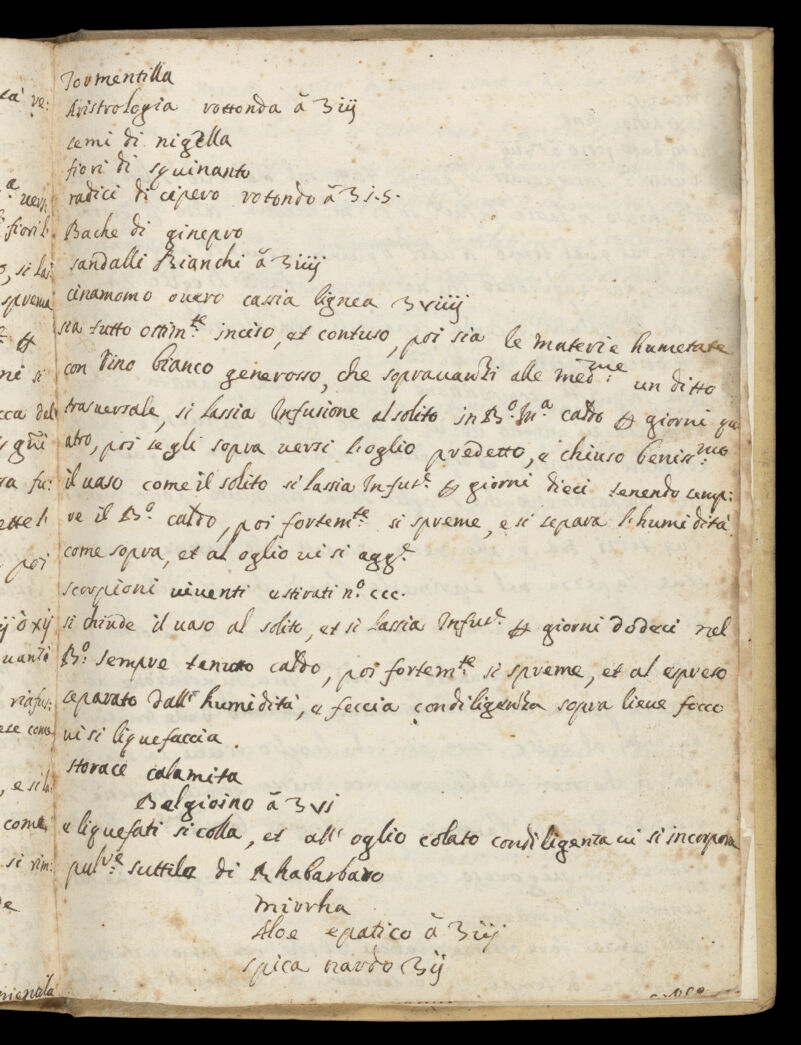 Tormentilla
Aristrologia rottonda ã ʒ iij
semi di nigella
fiori di squinanto
radici di cipero rotondo ã ʒ i.s.
Bache di ginepro
sandalli Bianchi ã ʒ iiij
cinamomo overo cassia lignea ʒ viiij
sia tutto ottim.te inciso, et contuso, poi sia le materie humetate
con vino bianco generosso, che sopravanzi alle med.me un ditto
trasversale, si lassia Infusione al solito in B.o M.a caldo giorni qu
atro, poi se gli sopra versi l'oglio predetto, e chiuso beniss.mo
il vaso come il solito si lassia Infus.e giorni dieci tenendo semp:
re il B.o caldo, poi fortem.te si spreme, e si separa l'humidità
come sopra, et al oglio vi si agg.e
scorpioni viventi estivati n.o ccc.
si chiude il vaso al solito, et si lassia Infus.e giorni dodeci nel
B.o sempre tenuto caldo, poi fortem.te si spreme, et al espreso
separato dall' humidità, e feccia con diligenza sopra lieve foco
vi si liquefaccia.
storace calamita
Belgioino ã ʒ vi
e liquefati si colla, et all' oglio colato con diligenza vi si incorpora
pulve suttile di Rhabarbaro
Mirrha
Aloe epatico ã ʒ iij
spica nardo ʒ ij